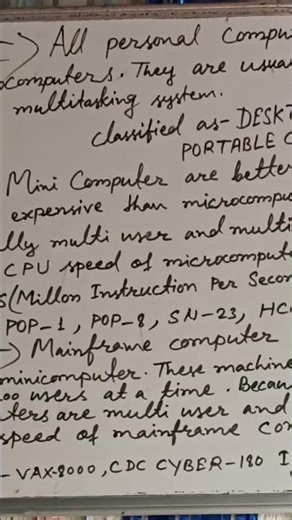 -) All personal Compu
computers. They are usua
multitasking system.
classified as- DESKT
PORTABLE C
Mini Computer are better
expensive than microcompu
lly multi user and multi
CPU speed of microcomput
S(Millon Instruction Per Secon
POP-1, POP-8, SN-23, HC
-) Mainframe computer
minicomputer. These machine
00 users at a time. Becau
ters are multi user and
speed of mainframe Co
- VAX-8000, CDC CYBER-180 I